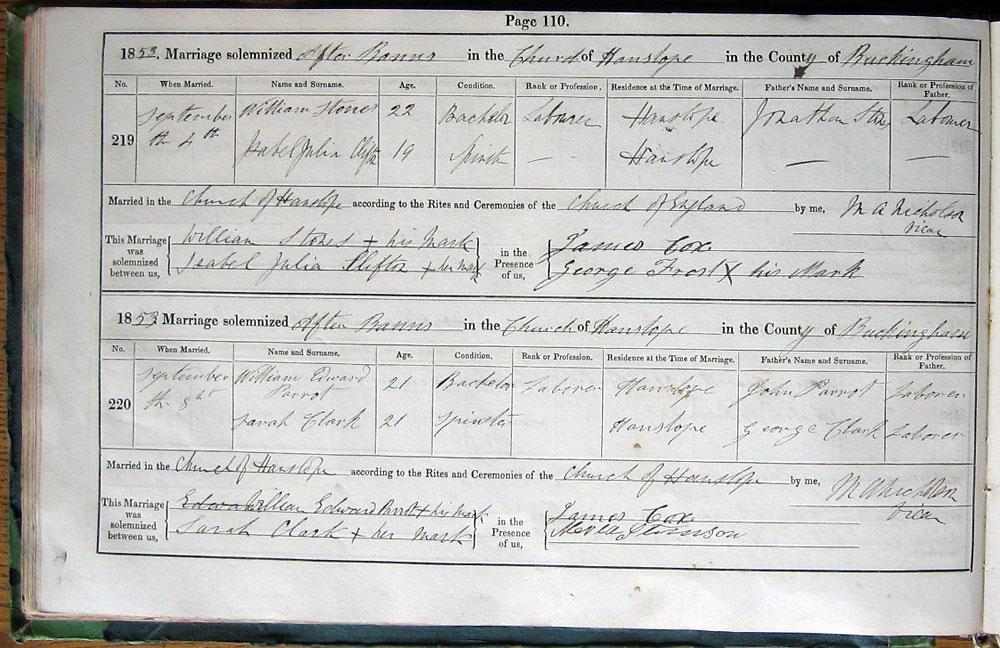 Page 110.
1853. Marriage solemnized After Banns in the Church of Hanslope in the County of Buckingham
No. When Married. Name and Surname. Age. Condition. Rank or Profession. Residence at the Time of Marriage. Father's Name and Surname. Rank or Profession of Father.
219 September William Stones 22 Bachelor Labourer Hanslope Jonathan Labourer
th 4th Isabel Julia Clifton 19 — Hanslope — —
Married in the Church of Hanslope according to the Rites and Ceremonies of the Church of England by me, M A Nicholson
Vicar
This Marriage was solemnized between us, William Stones + his Mark in the Presence of us, James Cox
Isabel Julia Clifton + her Mark George Frost X his Mark
1853. Marriage solemnized After Banns in the Church of Hanslope in the County of Buckingham
No. When Married. Name and Surname. Age. Condition. Rank or Profession. Residence at the Time of Marriage. Father's Name and Surname. Rank or Profession of Father.
220 September William Edward Parrot 21 Bachelor Laborer Hanslope John Parrot Laborer
th 8 Sarah Clark 21 Spinster Hanslope George Clark Laborer
Married in the Church of Hanslope according to the Rites and Ceremonies of the Church of Hanslope by me, M A Nicholson
Vicar
This Marriage was solemnized between us, William Edward Parrot + his Mark in the Presence of us, James Cox
Sarah Clark + her Mark Stimson